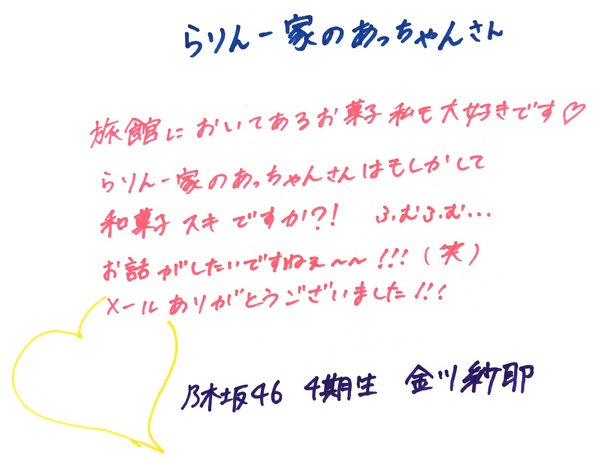 らりん一家のあっちゃんさん
旅館においてあるお菓子私も大好きです♡
らりん一家のあっちゃんさんはもしかして
和菓子スキですか?! ふむふむ...
お話がしたいですねぇ〜〜!!!(笑)
メールありがとうございました!!!
乃木坂46 4期生 金川紗耶